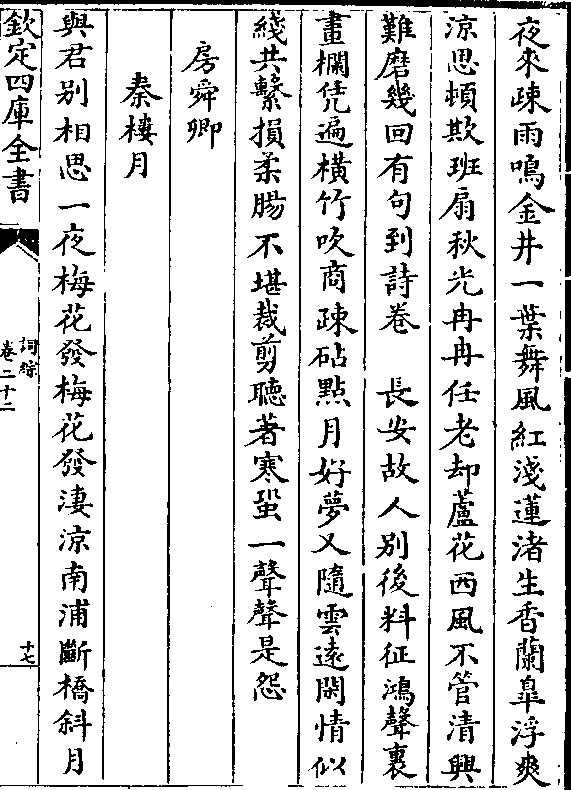 夜來疎雨鳴金井一葉舞風紅淺蓮渚生香蘭皐浮爽
凉思頓欺班扇秋光冉冉任老却蘆花西風不管清興
難磨幾回有句到詩卷　長安故人别後料征鴻聲裏
畫欄凭遍橫竹吹商疎砧點月好夢又隨雲遠閑情似
綫共繫損柔腸不堪裁剪聽著寒蛩一聲聲是怨
房舜卿
秦樓月
與君别相思一夜梅花發梅花發淒凉南浦斷橋斜月
欽定四庫全書
詞綜
卷二十二
十七